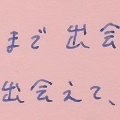 まで出会
出会えて、